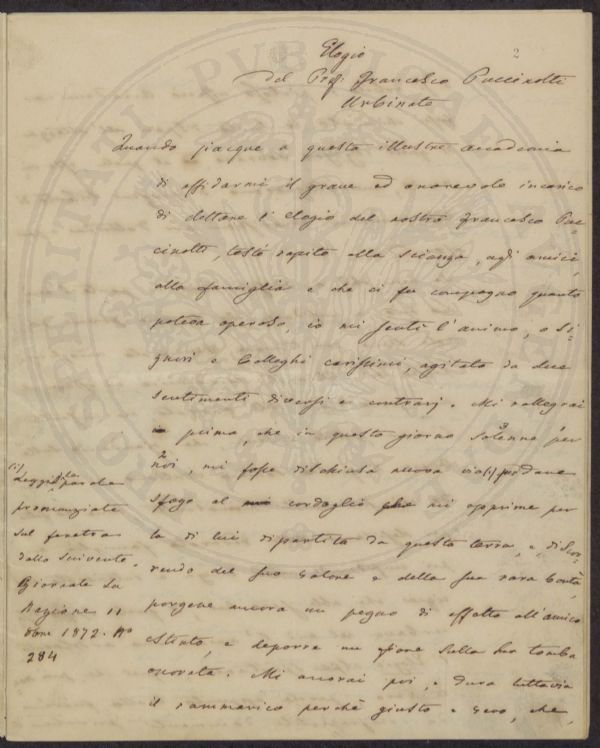 Elogio
2
del Prof. Francesco Puccinotti
Urbinate
Quando piacque a questa illustre accademia
di affidarmi il grave ed onorevole incarico
di dettare l'Elogio del nostro Francesco Puc=
cinotti, testé rapito alla scienza, agli amici,
alla famiglia e che ci fu compagno quanto
poteva operoso, io mi sentì l'animo, o Si=
gnori e Colleghi carissimi, agitato da due
sentimenti diversi e contrarj. Mi rallegrai
prima, che in questo giorno solenne per
noi, mi fosse dischiusa nuova via (1) per dare
sfogo al cordoglio che mi opprime per
la di lui dipartita da questa terra, e, discor=
rendo del suo valore e della sua rara bontà,
porgere ancora un pegno di affetto all'amico
estinto, e deporre un fiore sulla sua tomba
onorata. Mi accorai poi, e dura tuttavia
il rammarico perchè giusto e vero, che,
(1) Leggi le parole
pronunziate
sul feretro
dallo scrivente.
Giornale La
Nazione 11
8bre 1872. No
284
POSTERITATI PUBLICAE